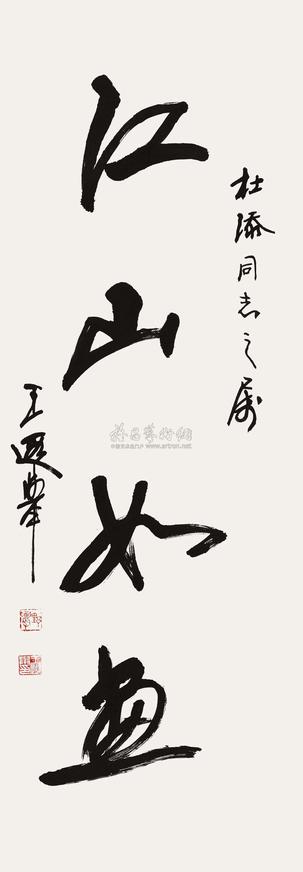 杜添同志之属
江山如画
王遐举
雅昌艺术网
www.artron.net